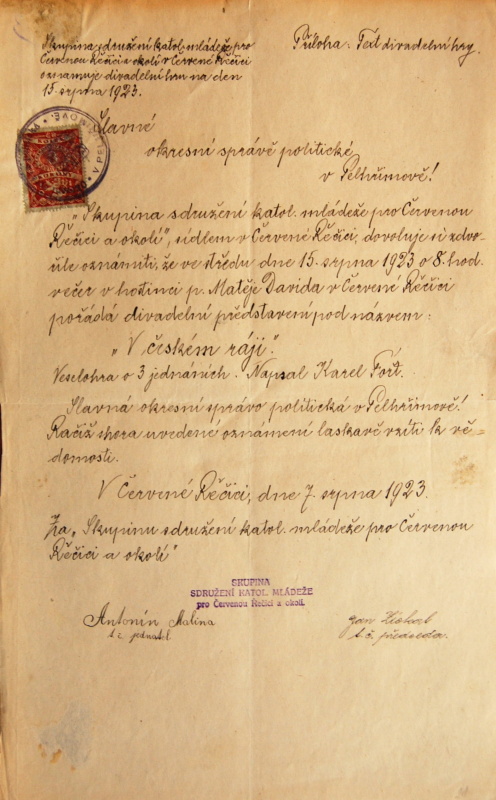 Skupina sdružení katol. mládeže pro
Červenou Řečici a okolí v Červené Řečici
oznamuje divadelní hru na den
15. srpna 1923.
Příloha: Text divadelní hry.
Slavné
okresní správě politické
v Pelhřimově!
„Skupina sdružení katol. mládeže pro Červenou
Řečici a okolí", sídlem v Červené Řečici, dovoluje si zdvo-
řile oznámiti, že ve středu dne 15. srpna 1923 o 8. hod.
večer v hostinci p. Matěje Davida v Červené Řečici
pořádá divadelní představení pod názvem:
„V českém ráji".
Veselohra o 3 jednáních. Napsal Karel Fořt.
Slavná okresní správo politická v Pelhřimově!
Račiž shora uvedené oznámení laskavě vzíti k vě-
domosti.
V Červené Řečici, dne 7. srpna 1923.
Za „Skupinu sdružení katol. mládeže pro Červenou
Řečici a okolí"
SKUPINA
SDRUŽENÍ KATOL. MLÁDEŽE
pro Červenou Řečici a okolí.
Antonín Malina
t. č. jednatel
Jan
t. č. předseda.